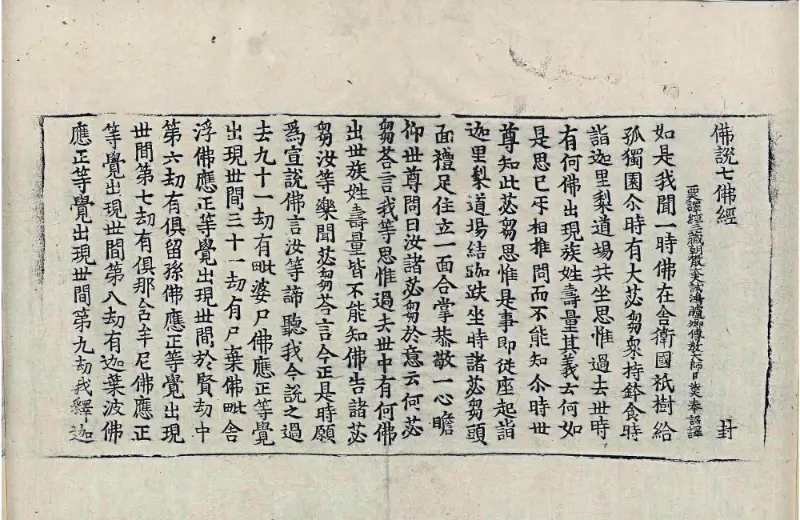 佛說七佛經 封
譯經三藏朝散大夫試鴻臚卿傳教大師臣法天奉 詔譯
如是我聞一時佛在舍衛國祇樹給
孤獨園尒時有大苾芻衆持鉢食時
詣迦里梨道場共坐思惟過去世時
有何佛出現族姓壽量其義云何如
是思已牙相推問而不能知尒時世
尊知此苾芻思惟是事即從座起詣
迦里梨道場結跏趺坐時諸苾芻頭
面禮足住立一面合掌恭敬一心瞻
仰世尊問曰汝諸苾芻於意云何苾
芻荅言我等思惟過去世中有何佛
出世族姓壽量皆不能知佛告諸苾
芻汝等樂聞苾芻荅言今正是時願
爲宣說佛言汝等諦聽我今說之過
去九十一劫有毗婆尸佛應正等覺
出現世間三十一劫有尸棄佛毗舍
浮佛應正等覺出現世間於賢劫中
第六劫有俱留孫佛應正等覺出現
世間第七劫有俱那含牟尼佛應正
等覺出現世間第八劫有迦葉波佛
應正等覺出現世間第九劫我釋迦